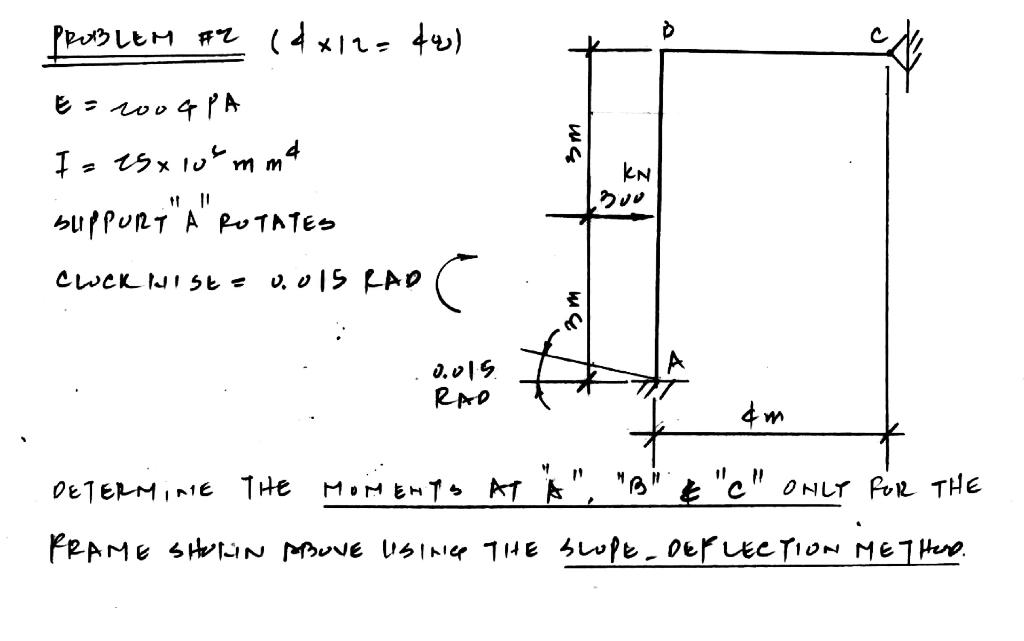 PROBLEM #2 (4x12= 48)
E = 200 GPA
I = 25 x 10⁶ mm⁴
SUPPORT "A" ROTATES
CLOCKWISE = 0.015 RAD
B
C
3m
KN
300
3m
A
0.015
RAD
4m
DETERMINE THE MOMENTS AT "A", "B" & "C" ONLY FOR THE
FRAME SHOWN ABOVE USING THE SLOPE-DEFLECTION METHOD.